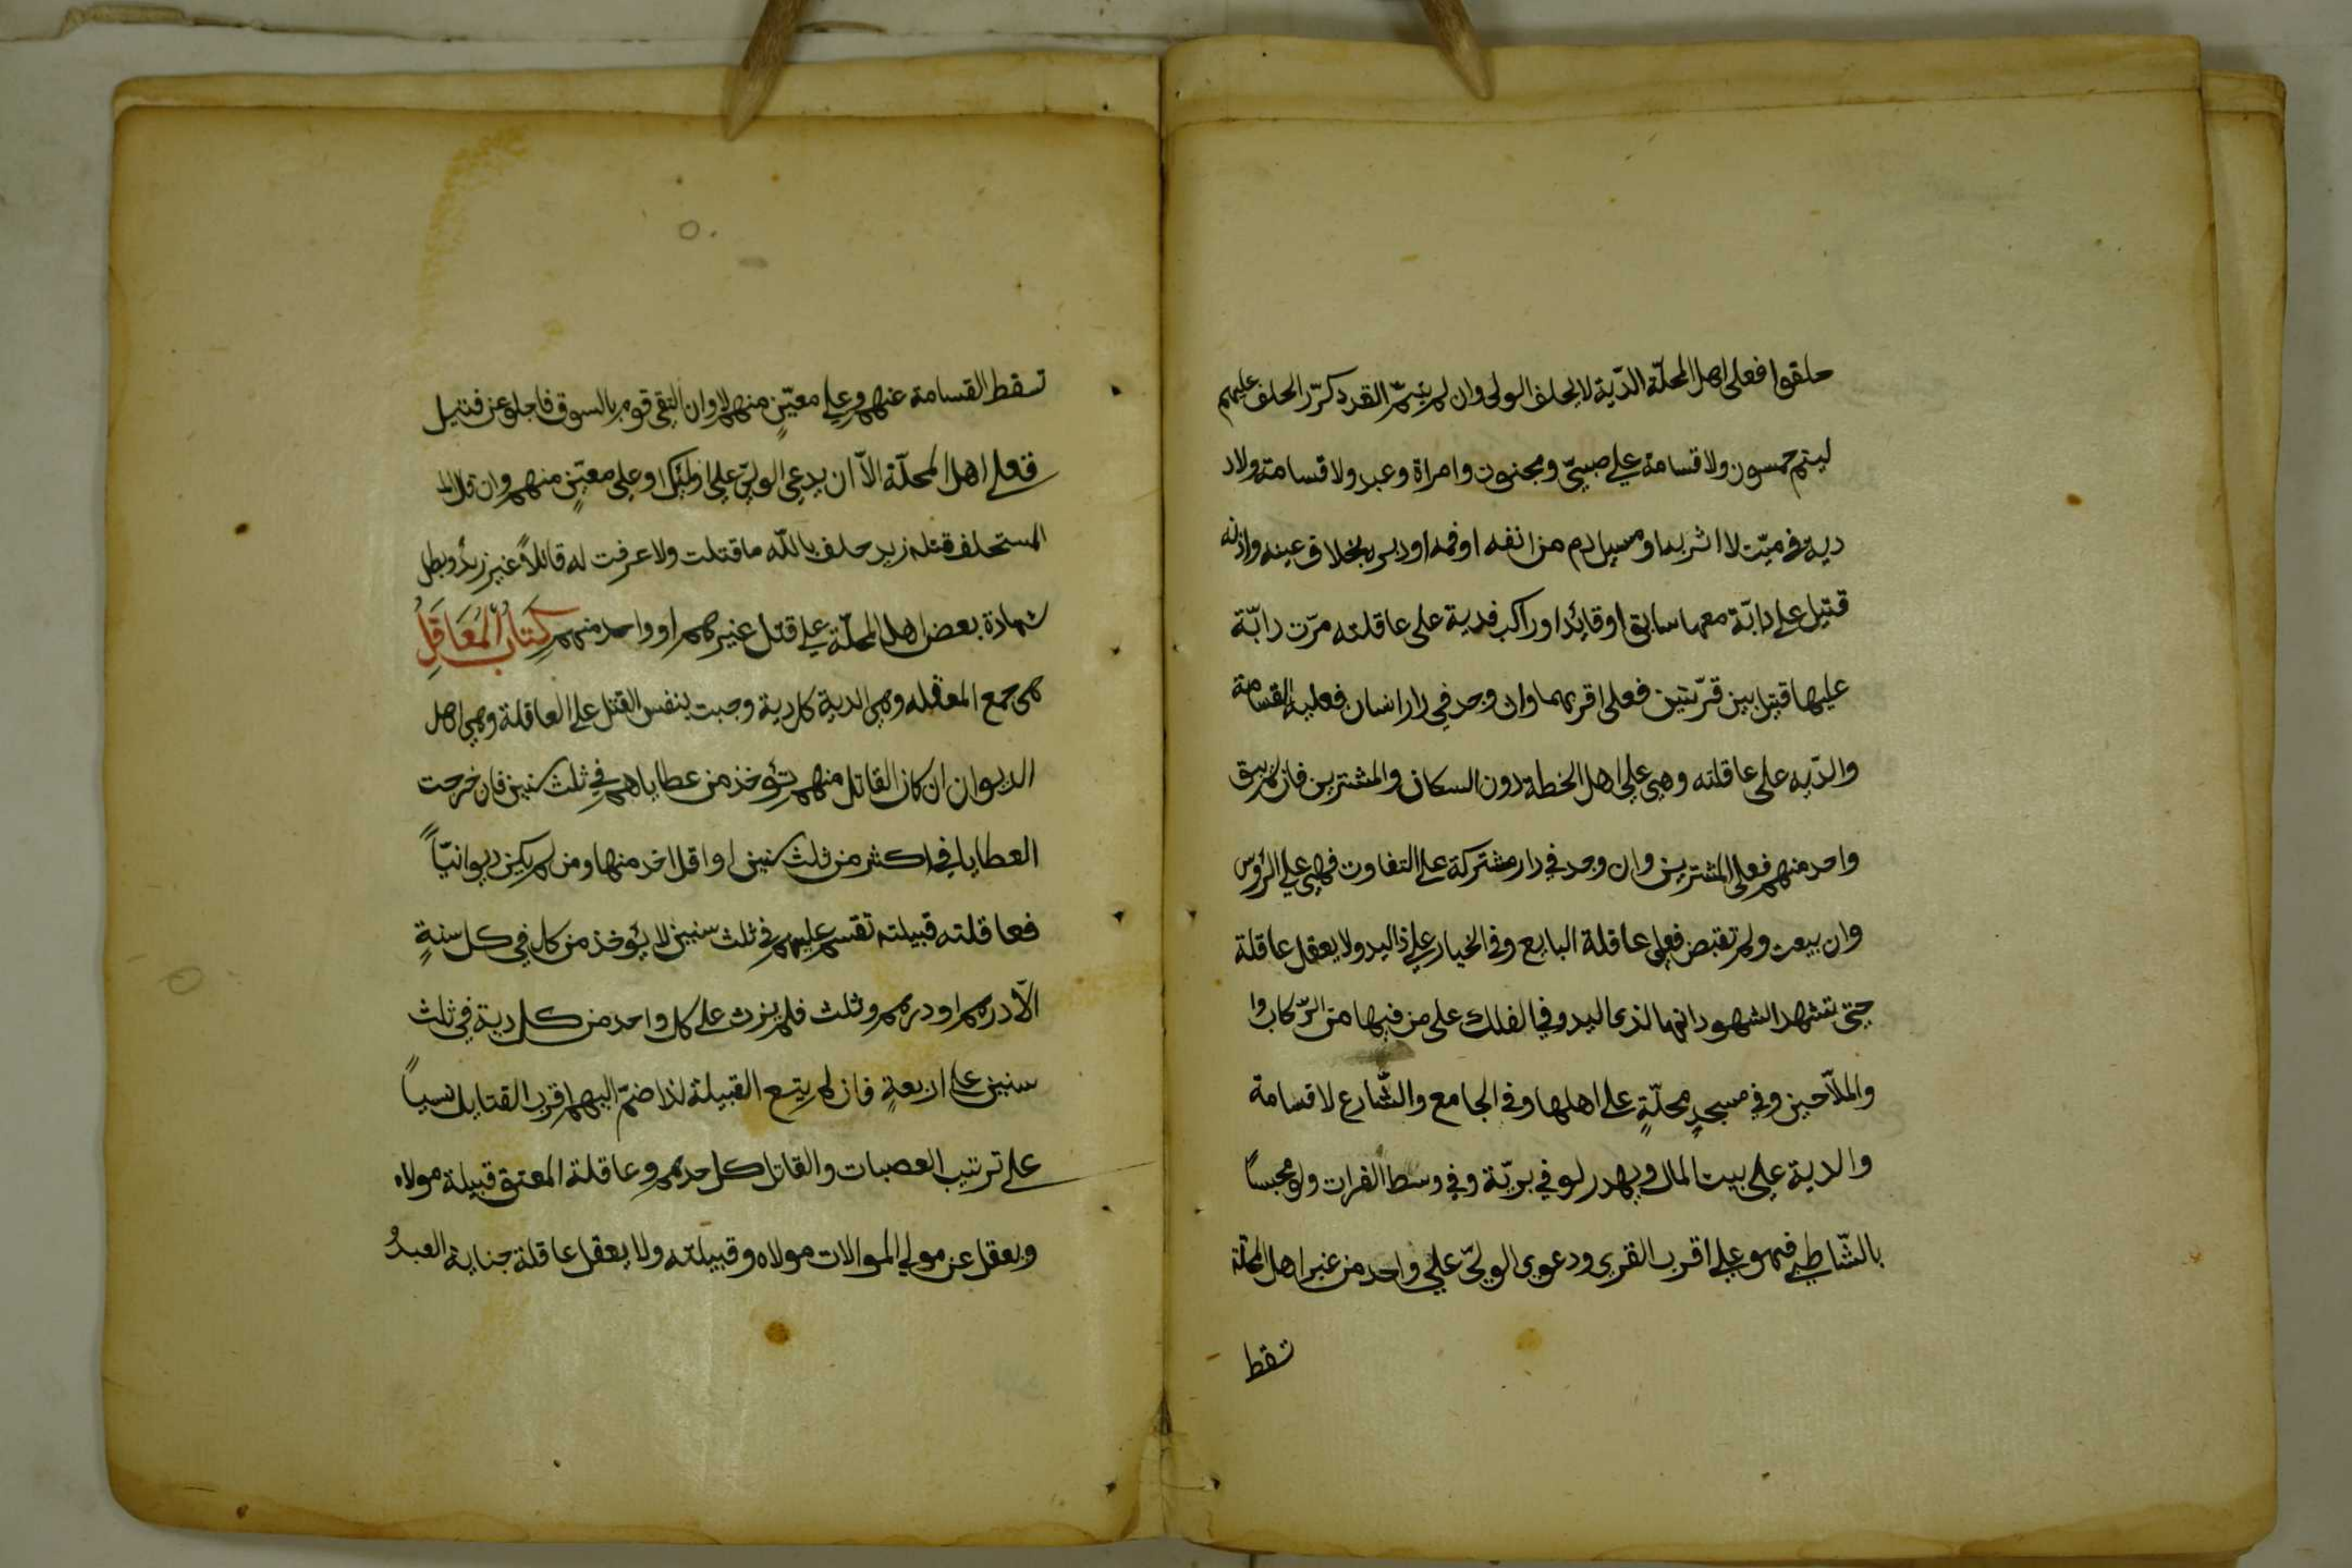 حلقوا فعلى اهل المحلّة الدّية لا يحلف الولى وان لم يتمّ القدد كرّر الحلف عليهم
ليتم خمسون ولا قسامة على صبيّ ومجنون وامراة وعبد ولا قسامة ولاد
ديه في ميّت لا اثر بداو مسيل دم من انفه او فمه او دبره بخلاف عينه واذنه
قتيل على دابّة معها سابق او قائد او راكب فدية على عاقلته مرّت دابّة
عليها قتيل بين قرّيتين فعلى اقربهما وان وجد في دار انسان فعليه القسامة
والدّيه على عاقلته وهي على اهل الخطة دون السكان والمشترين فان لم يبق
واحد منهم فعلى المشترين وان وجد في دار مشتركة على التفاوت فهي على الرؤس
وان بيعت ولم تقبض فعلى عاقلة البايع وفي الخيار على ذاليد ولا يعقل عاقلة
حتى تشهد الشهود انها لذى اليد وفي الفلك على من فيها من الرّكاب وا
والملاّحين وفي مسجدٍ محلّةٍ على اهلها وفي الجامع والشّارع لا قسامة
والدية على بيت المال ويهدر لو في بريّة وفي وسط الفرات ولو محبساً
بالشّاطي فهو على اقرب القرى ودعوى الوليّ على واحد من غير اهل المحلّة
تسقط
تسقط القسامة عنهم وعلى معيّنٍ منهم لا وان التقى قوم بالسوق فاجلو عن قتيل
فعلى اهل المحلّة الاّ ان يدعى الوليّ على اولئك او على معيّنٍ منهم وان قال الم
المستحلف قتله زيد حلف بالله ما قتلت ولا عرفت له قاتلاً غير زيدٌ وبطل
شهادة بعض اهل المحلّة على قتل غيرهم او واحد منهم كِتَابُ المَعَاقِلُ
هى جمع المعقله وهى الدية كل دية وجبت بنفس القتل على العاقلة وهى اهل
الديوان ان كان القاتل منهم تؤخذ من عطاياهم في ثلث سنين فان خرجت
العطايا في اكثر من ثلث سنين او اقل اخذ منها ومن لم يكن ديوانيّاً
فعاقلته قبيلته تقسم عليهم في ثلث سنين لا يؤخذ من كل في كل سنةٍ
الاّ درهم او درهم وثلث فلم يزد على كل واحد من كل دية في ثلث
سنين على اربعةٍ فان لم يتسع القبيلة لذا ضمّ اليهم اقرب القبايل نسباً
على ترتيب العصبات والقاتل كاحدهم وعاقلة المعتق قبيلة مولاه
ويعقل عن مولى الموالات مولاه وقبيلته ولا يعقل عاقلة جناية العبدُ